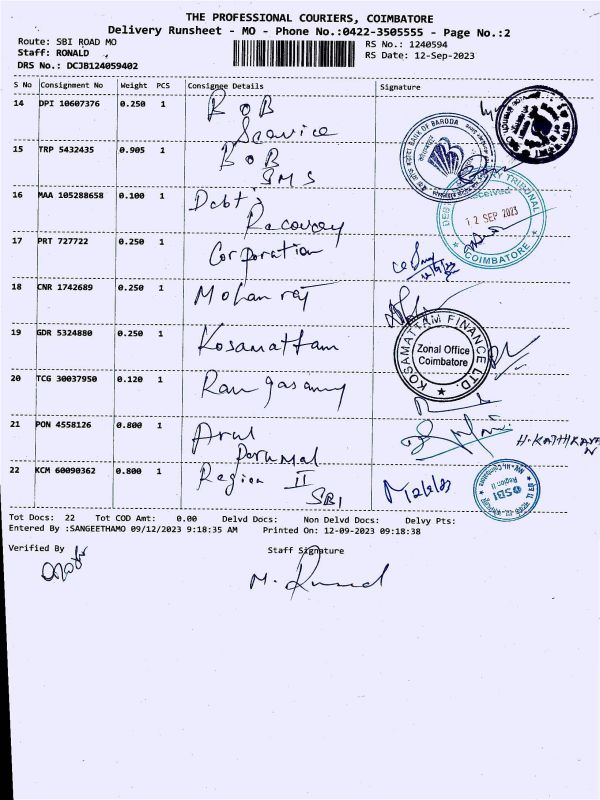 THE PROFESSIONAL COURIERS, COIMBATORE
Delivery Runsheet - MO - Phone No.:0422-3505555 - Page No.:2
Route: SBI ROAD MO RS No.: 1240594
Staff: RONALD RS Date: 12-Sep-2023
DRS No.: DCJB124059402
S No Consignment No Weight PCS Consignee Details Signature
14 DPI 10607376 0.250 1 BOB Service
15 TRP 5432435 0.905 1 BOB SMS
BANK OF BARODA
16 MAA 105288658 0.100 1 Debt Recovery
TRIBUNAL
Received
12 SEP 2023
COIMBATORE
17 PRT 727722 0.250 1 Corporation
18 CNR 1742689 0.250 1 Mohanraj
19 GDR 5324880 0.250 1 Kosamattam
KOSAMATTAM FINANCE LTD.
Zonal Office
Coimbatore
20 TCG 30037950 0.120 1 Rangasamy
21 PON 4558126 0.800 1 Arul Perumal
22 KCM 60090362 0.800 1 Region II SBI
SBI
Region II
Tot Docs: 22 Tot COD Amt: 0.00 Delvd Docs: Non Delvd Docs: Delvy Pts:
Entered By :SANGEETHAMO 09/12/2023 9:18:35 AM Printed On: 12-09-2023 09:18:38
Verified By Staff Signature